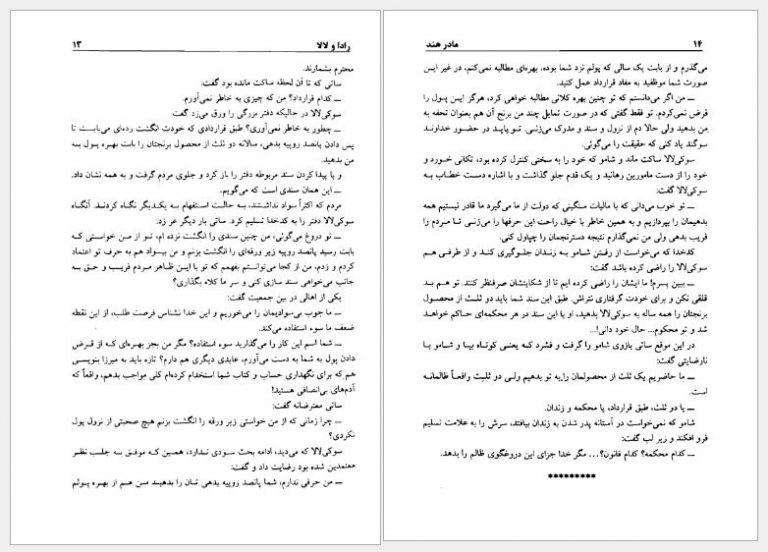 رادا و لالا ۱۳
محترم بشمارند.
ساتی که تا آن لحظه ساکت مانده بود گفت:
ــ کدام قرارداد؟ من که چیزی به خاطر نمی‌آورم.
سوکی‌لالا در حالیکه دفتر بزرگی را ورق می‌زد گفت
ــ چطور به خاطر نمی‌آوری؟ طبق قراردادی که خودت انگشت زده‌ای می‌بایست تا
پس دادن پانصد روپیه بدهی، سالانه دو ثلث از محصول برنجتان را بابت بهره پول به
من بدهید.
و با پیدا کردن سند مربوطه دفتر را باز کرد و جلوی مردم گرفت و به همه نشان داد.
ــ این همان سندی است که می‌گویم.
مردم که اکثراً سواد نداشتند، به حالت استفهام به یکدیگر نگاه کردند. آنگاه
سوکی‌لالا دفتر را به کدخدا تسلیم کرد. ساتی بار دیگر غر زد:
ــ تو دروغ می‌گوئی، من چنین سندی را انگشت نزده ام، تو از من خواستی که
بابت رسید پانصد روپیه زیر ورقه‌ای را انگشت بزنم و من بیسواد هم به حرف تو اعتماد
کردم و زدم، من از کجا می‌توانستم بفهمم که تو با این ظاهر مردم فریب و حق به
جانب می‌خواهی سند سازی کنی و سر ما کلاه بگذاری؟
یکی از اهالی در بین جمعیت گفت:
ــ ما چوب بی‌سوادیمان را می‌خوریم و این خدا نشناس فرصت طلب، از این نقطه
ضعف ما سوء استفاده می‌کند.
ــ شما اسم این کار را می‌گذارید سوء استفاده؟ مگر من بجز بهره‌ای که از قرض
دادن پول به شما به دست می‌آورم، عایدی دیگری هم دارم؟ تازه باید به میرزا بنویسی
هم که برای نگهداری حساب و کتاب شما استخدام کرده‌ام کلی مواجب بدهم، واقعاً که
آدم‌های بی‌انصافی هستید!
ساتی معترضانه گفت:
ــ چرا زمانی که از من خواستی زیر ورقه را انگشت بزنم هیچ صحبتی از نزول پول
نکردی؟
سوکی‌لالا که می‌دید، ادامه بحث سودی ندارد، همین که موفق به جلب نظر
معتمدین شده بود رضایت داد و گفت:
ــ من حرفی ندارم، شما پانصد روپیه بدهی تان را بدهید من هم از بهره پولم
۱۴ مادر هند
می‌گذرم و از بابت یک سالی که پولم نزد شما بوده، بهره‌ای مطالبه نمی‌کنم، در غیر این
صورت شما موظفید به مفاد قرارداد عمل کنید.
ــ من اگر می‌دانستم که تو چنین بهره کلانی مطالبه خواهی کرد، هرگز این پول را
قرض نمی‌کردم. تو فقط گفتی که در صورت تمایل چند من برنج آن هم بعنوان تحفه به
من بدهید ولی حالا دم از نزول و سند و مدرک می‌زنی. تو باید در حضور خداوند
سوگند یاد کنی که حقیقت را می‌گوئی.
سوکی‌لالا ساکت ماند و شامو که خود را به سختی کنترل کرده بود، تکانی خورد و
خود را از دست مامورین رهانید و یک قدم جلو گذاشت و با اشاره دست خطاب به
سوکی‌لالا گفت:
ــ تو خوب می‌دانی که با مالیات سنگینی که دولت از ما می‌گیرد ما قادر نیستیم همه
بدهیمان را بپردازیم و به همین خاطر با خیال راحت این حرفها را می‌زنی تا مردم را
فریب بدهی ولی من نمی‌گذارم نتیجه دسترنجمان را چپاول کنی.
کدخدا که می‌خواست از رفتن شامو به زندان جلوگیری کند و از طرفی هم
سوکی‌لالا را راضی کرده باشد گفت:
ــ ببین پسرم! ما ایشان را راضی کرده ایم تا از شکایتشان صرفنظر کنند. تو هم بد
قلقی نکن و برای خودت گرفتاری نتراش. طبق این سند شما باید دو ثلث از محصول
برنجتان را همه ساله به سوکی‌لالا بدهید، او با این سند در هر محکمه‌ای حاکم خواهد
شد و تو محکوم... حال خود دانی!...
در این موقع ساتی بازوی شامو را گرفت و فشرد که یعنی کوتاه بیا و شامو با
نارضایتی گفت:
ــ ما حاضریم یک ثلث از محصولمان را به تو بدهیم ولی دو ثلث واقعاً ظالمانه
است.
ــ یا دو ثلث، طبق قرارداد، یا محکمه و زندان.
شامو که نمی‌خواست در آستانه پدر شدن به زندان بیافتد، سرش را به علامت تسلیم
فرو افکند و زیر لب گفت:
ــ کدام محکمه؟ کدام قانون؟... مگر خدا جزای این دروغگوی ظالم را بدهد.
*********